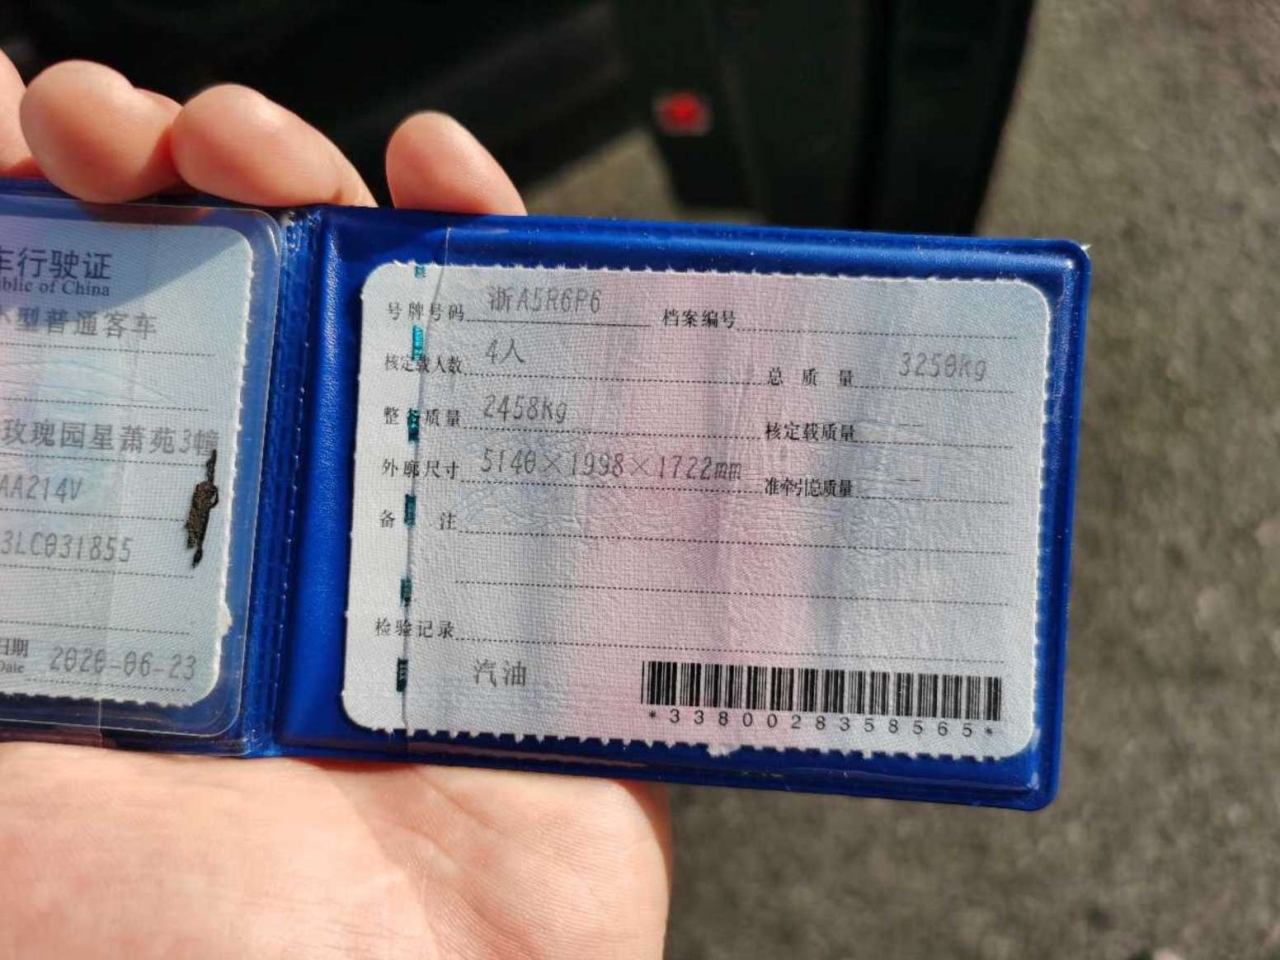 车行驶证
blic of China
型普通客车
玫瑰园星萧苑3幢
AA214V
3LC031855
日期
Date 2020-06-23
号牌号码 浙A5R6P6 档案编号
核定载人数 4人 总质量 3250kg
整备质量 2458kg 核定载质量 --
外廓尺寸 5140×1998×1722mm 准牵引总质量 --
备注
检验记录
汽油
*3380028358565*